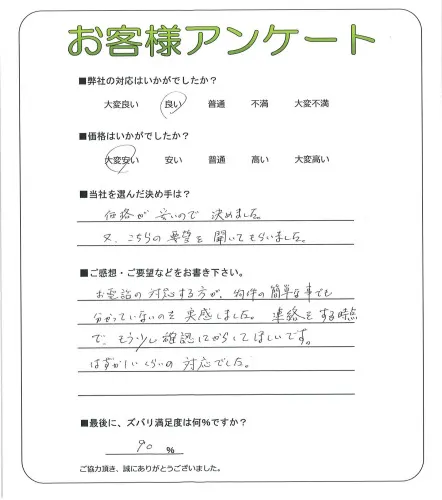 お客様アンケート
■弊社の対応はいかがでしたか？
大変良い 良い 普通 不満 大変不満
■価格はいかがでしたか？
大変安い 安い 普通 高い 大変高い
■当社を選んだ決め手は？
価格が安いので決めました。
又、こちらの要望を聞いてもらいました。
■ご感想・ご要望などをお書き下さい。
お電話の対応する方が、物件の簡単な事でも
分かっていないのを実感しました。連絡をする時点
で、もう少し確認してからしてほしいです。
はずかしいくらいの対応でした。
■最後に、ズバリ満足度は何％ですか？
90 %
ご協力頂き、誠にありがとうございました。